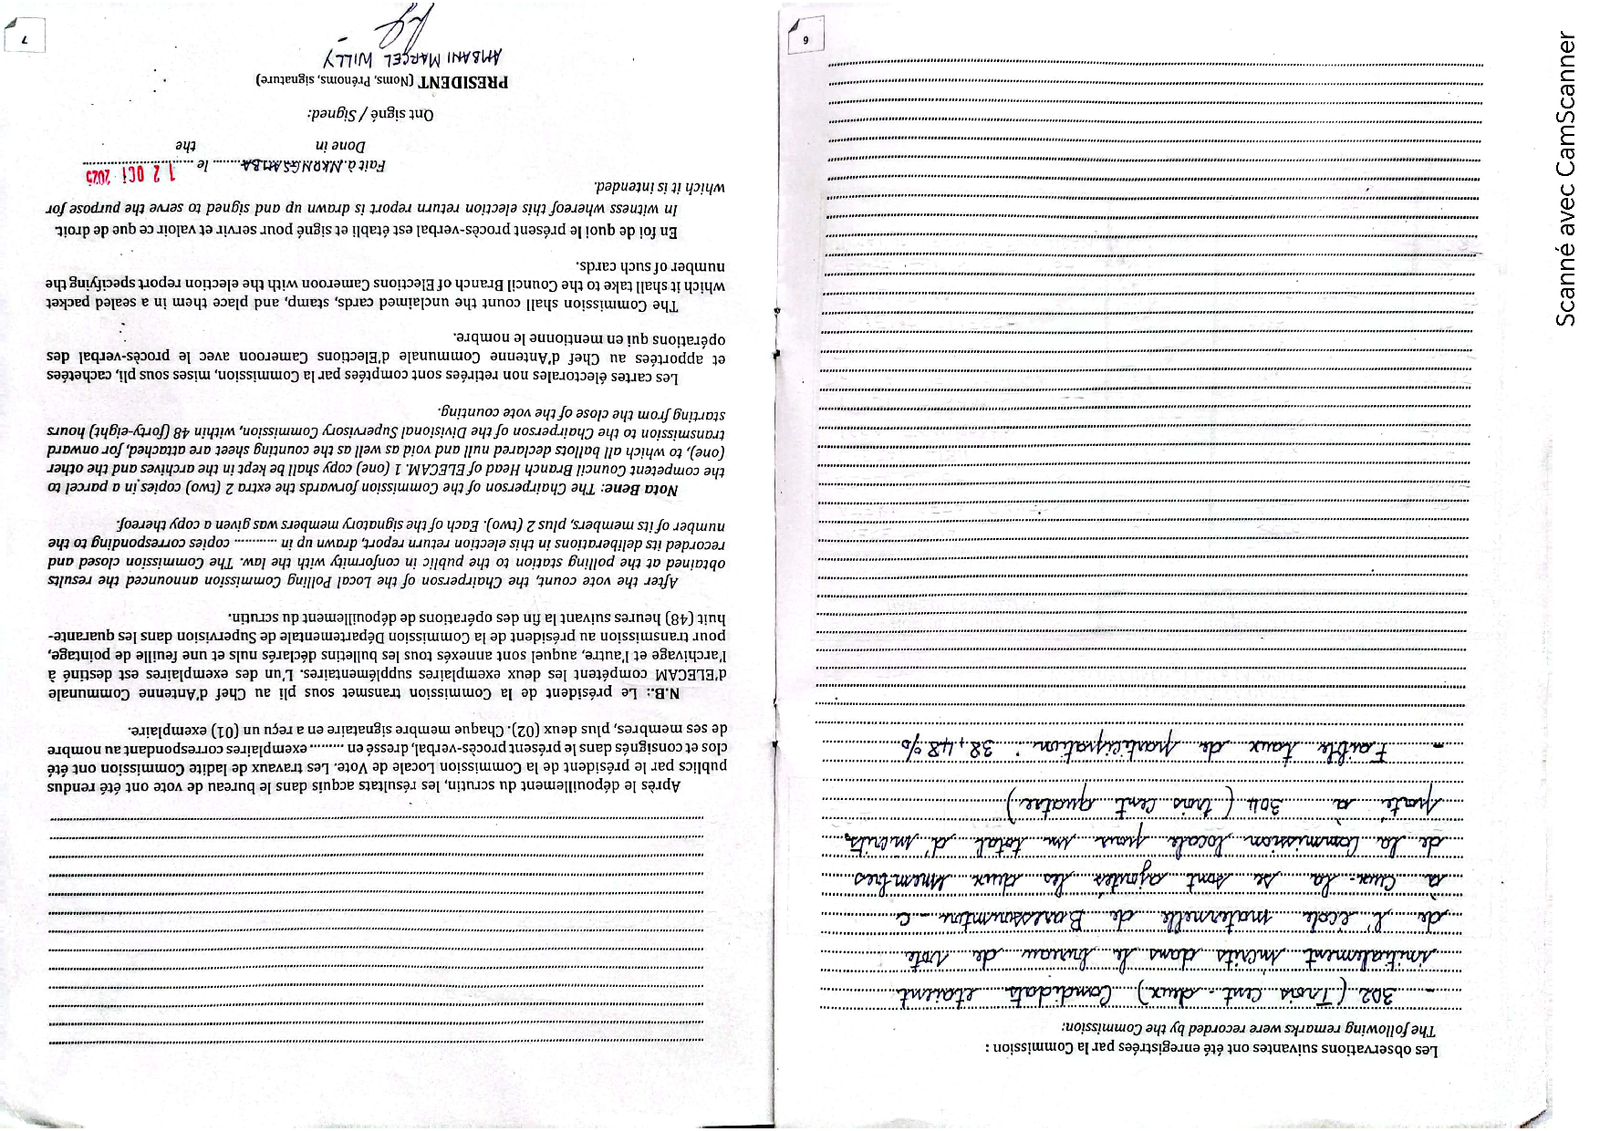 Les observations suivantes ont été enregistrées par la Commission :
The following remarks were recorded by the Commission:
- 302 (Trois cent deux) Candidats étaient
initialement inscrits dans le bureau de vote
de l'école maternelle de Bassoumtou - C
à ceux-la se sont ajoutés les deux membres
de la Commission locale pour un total d'inscrits
porté à 304 (trois cent quatre)
- Faible taux de participation : 38,48%
6
Après le dépouillement du scrutin, les résultats acquis dans le bureau de vote ont été rendus
publics par le président de la Commission Locale de Vote. Les travaux de ladite Commission ont été
clos et consignés dans le présent procès-verbal, dressé en ......... exemplaires correspondant au nombre
de ses membres, plus deux (02). Chaque membre signataire en a reçu un (01) exemplaire.
N.B.: Le président de la Commission transmet sous pli au Chef d'Antenne Communale
d'ELECAM compétent les deux exemplaires supplémentaires. L'un des exemplaires est destiné à
l'archivage et l'autre, auquel sont annexés tous les bulletins déclarés nuls et une feuille de pointage,
pour transmission au président de la Commission Départementale de Supervision dans les quarante-
huit (48) heures suivant la fin des opérations de dépouillement du scrutin.
After the vote count, the Chairperson of the Local Polling Commission announced the results
obtained at the polling station to the public in conformity with the law. The Commission closed and
recorded its deliberations in this election return report, drawn up in ........... copies corresponding to the
number of its members, plus 2 (two). Each of the signatory members was given a copy thereof.
Nota Bene: The Chairperson of the Commission forwards the extra 2 (two) copies in a parcel to
the competent Council Branch Head of ELECAM. 1 (one) copy shall be kept in the archives and the other
(one), to which all ballots declared null and void as well as the counting sheet are attached, for onward
transmission to the Chairperson of the Divisional Supervisory Commission, within 48 (forty-eight) hours
starting from the close of the vote counting.
Les cartes électorales non retirées sont comptées par la Commission, mises sous pli, cachetées
et apportées au Chef d'Antenne Communale d'Elections Cameroon avec le procès-verbal des
opérations qui en mentionne le nombre.
The Commission shall count the unclaimed cards, stamp, and place them in a sealed packet
which it shall take to the Council Branch of Elections Cameroon with the election report specifying the
number of such cards.
En foi de quoi le présent procès-verbal est établi et signé pour servir et valoir ce que de droit.
In witness whereof this election return report is drawn up and signed to serve the purpose for
which it is intended.
Fait à NKONGSAMBA le 12 OCT 2025
Done in the
Ont signé / Signed:
PRESIDENT (Noms, Prénoms, signature)
AMBANI MARCEL WILLY
7
Scanné avec CamScanner